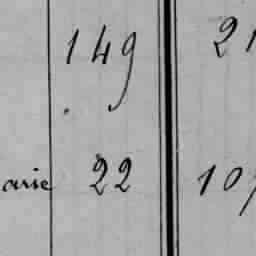 149 21
arie 22 107